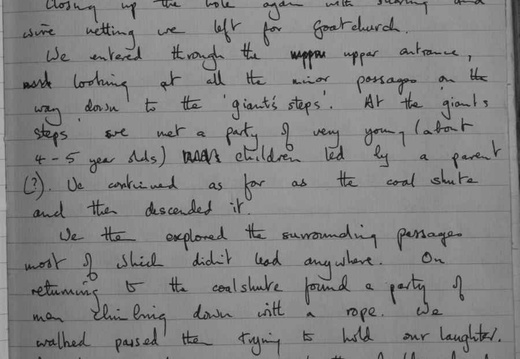 Closing up the hole again with sharing and
wire netting we left for Goatchurch.
We entered through the upper entrance,
looking at all the minor passages on the
way down to the 'giant's steps'. At the 'giant's
steps' we met a party of very young (about
4-5 year olds) children led by a parent
(?). We continued as far as the coal shute
and then descended it.
We the explored the surrounding passages
most of which didn't lead anywhere. On
returning to the coalshute found a party of
men climbing down with a rope. We
walked passed them trying to hold our laughter.